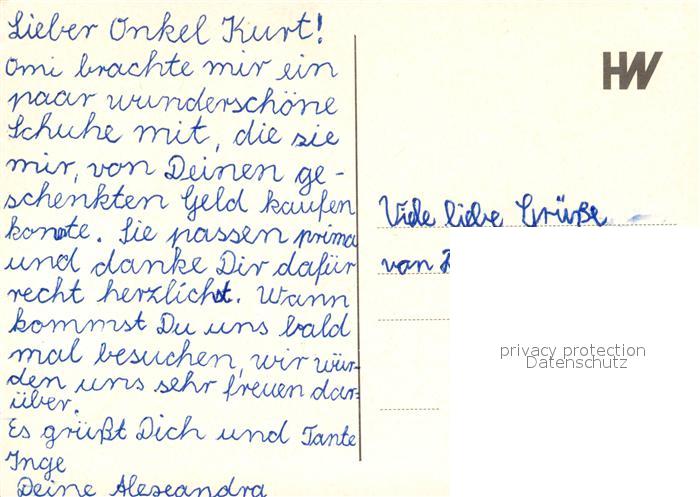 Lieber Onkel Kurt!
Omi brachte mir ein
paar wunderschöne
Schuhe mit, die sie
mir, von Deinen ge-
schenkten Geld kaufen
konte. Sie passen prima
und danke Dir dafür
recht herzlichst. Wann
kommst Du uns bald
mal besuchen, wir wür-
den uns sehr freuen dar-
über.
Es grüßt Dich und Tante
Inge
Deine Alexandra
HW
Viele liebe Grüße
von
privacy protection
Datenschutz